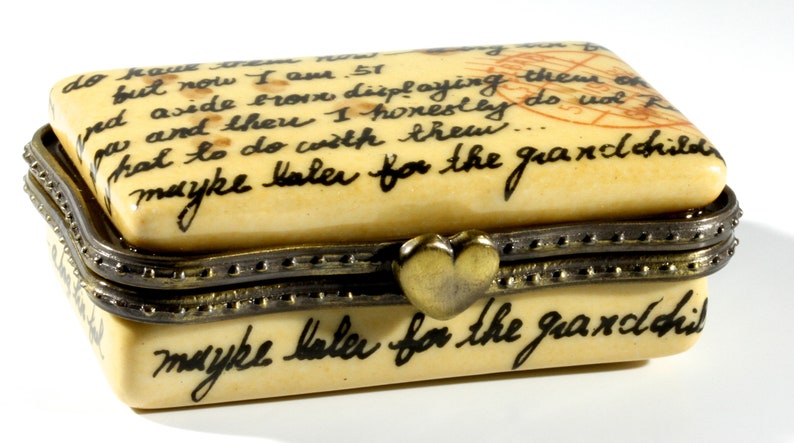 do have them now
but now I am 51
nd aside from displaying them on
and then I honestly do not
hat to do with them...
mayke later for the grandchild
mayke later for the grandchil